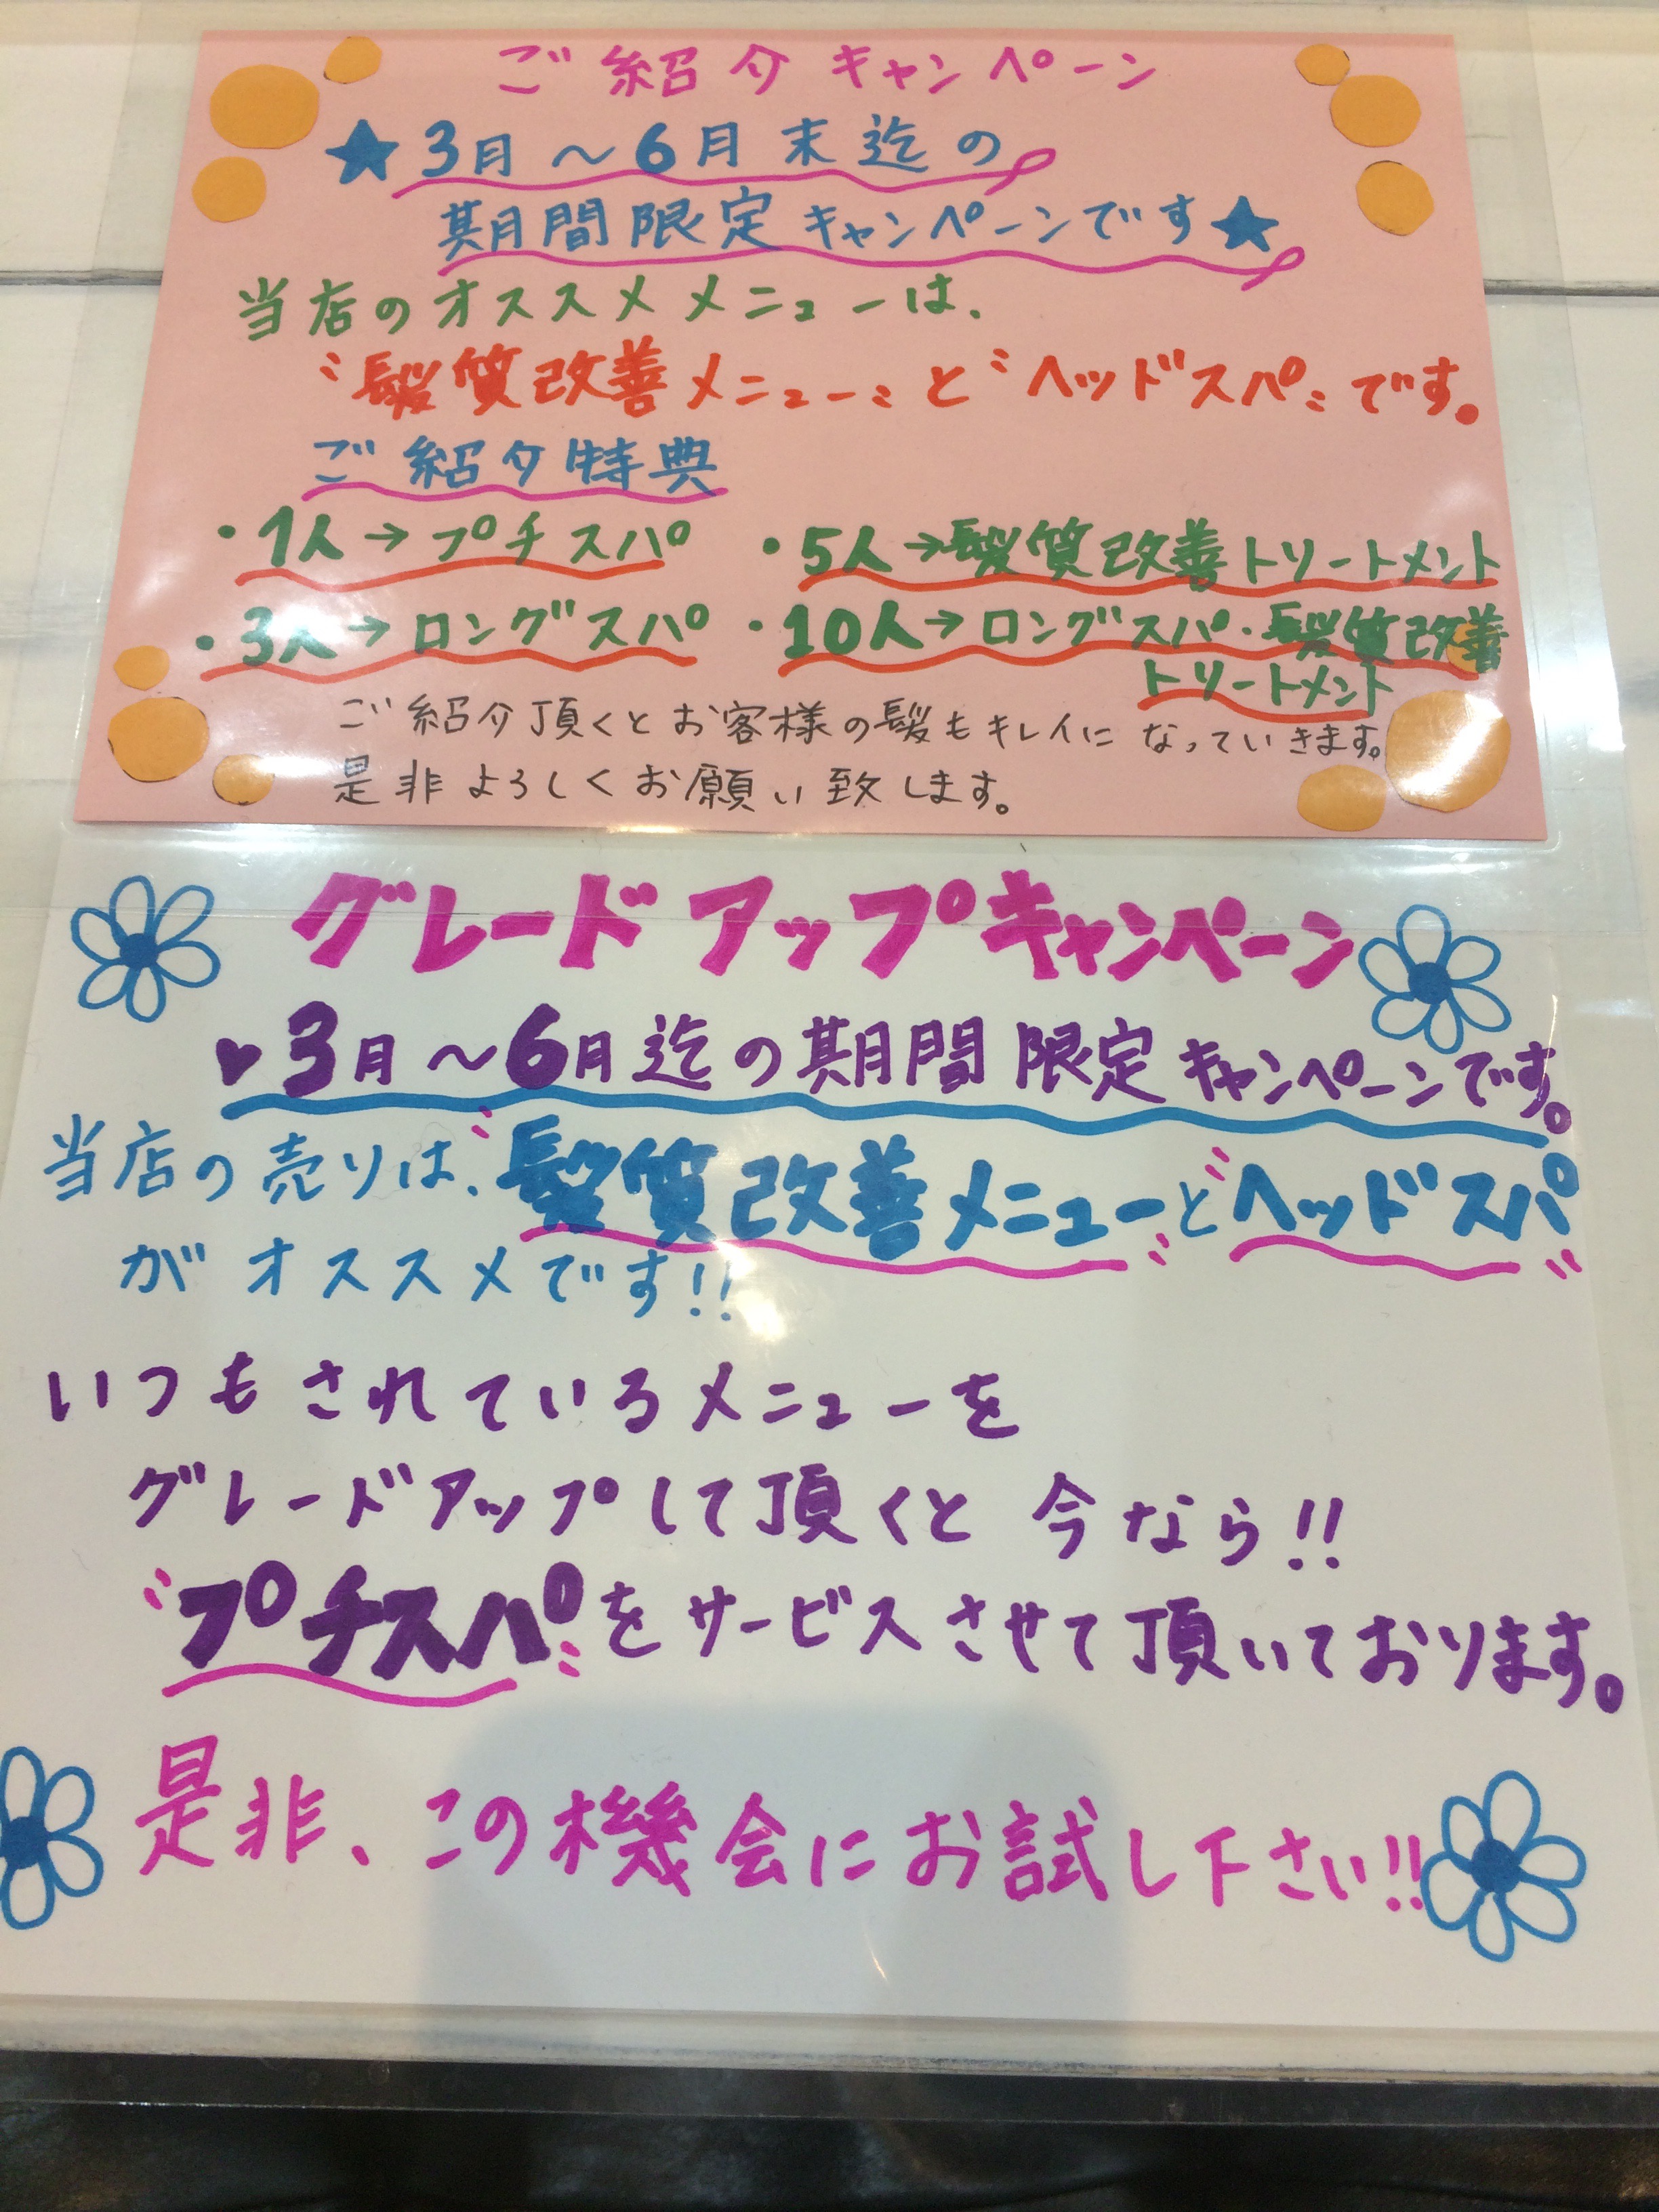 ご紹介キャンペーン
★3月～6月末迄の
期間限定キャンペーンです★
当店のオススメメニューは、
〝髪質改善メニュー〟と〝ヘッドスパ〟です。
ご紹介特典
・1人→プチスパ ・5人→髪質改善トリートメント
・3人→ロングスパ ・10人→ロングスパ・髪質改善
トリートメント
ご紹介頂くとお客様の髪もキレイになっていきます。
是非よろしくお願い致します。
グレードアップキャンペーン
♥3月～6月迄の期間限定キャンペーンです。
当店の売りは、〝髪質改善メニュー〟と〝ヘッドスパ〟
がオススメです!!
いつもされているメニューを
グレードアップして頂くと今なら!!
〝プチスパ〟をサービスさせて頂いております。
是非、この機会にお試し下さい!!